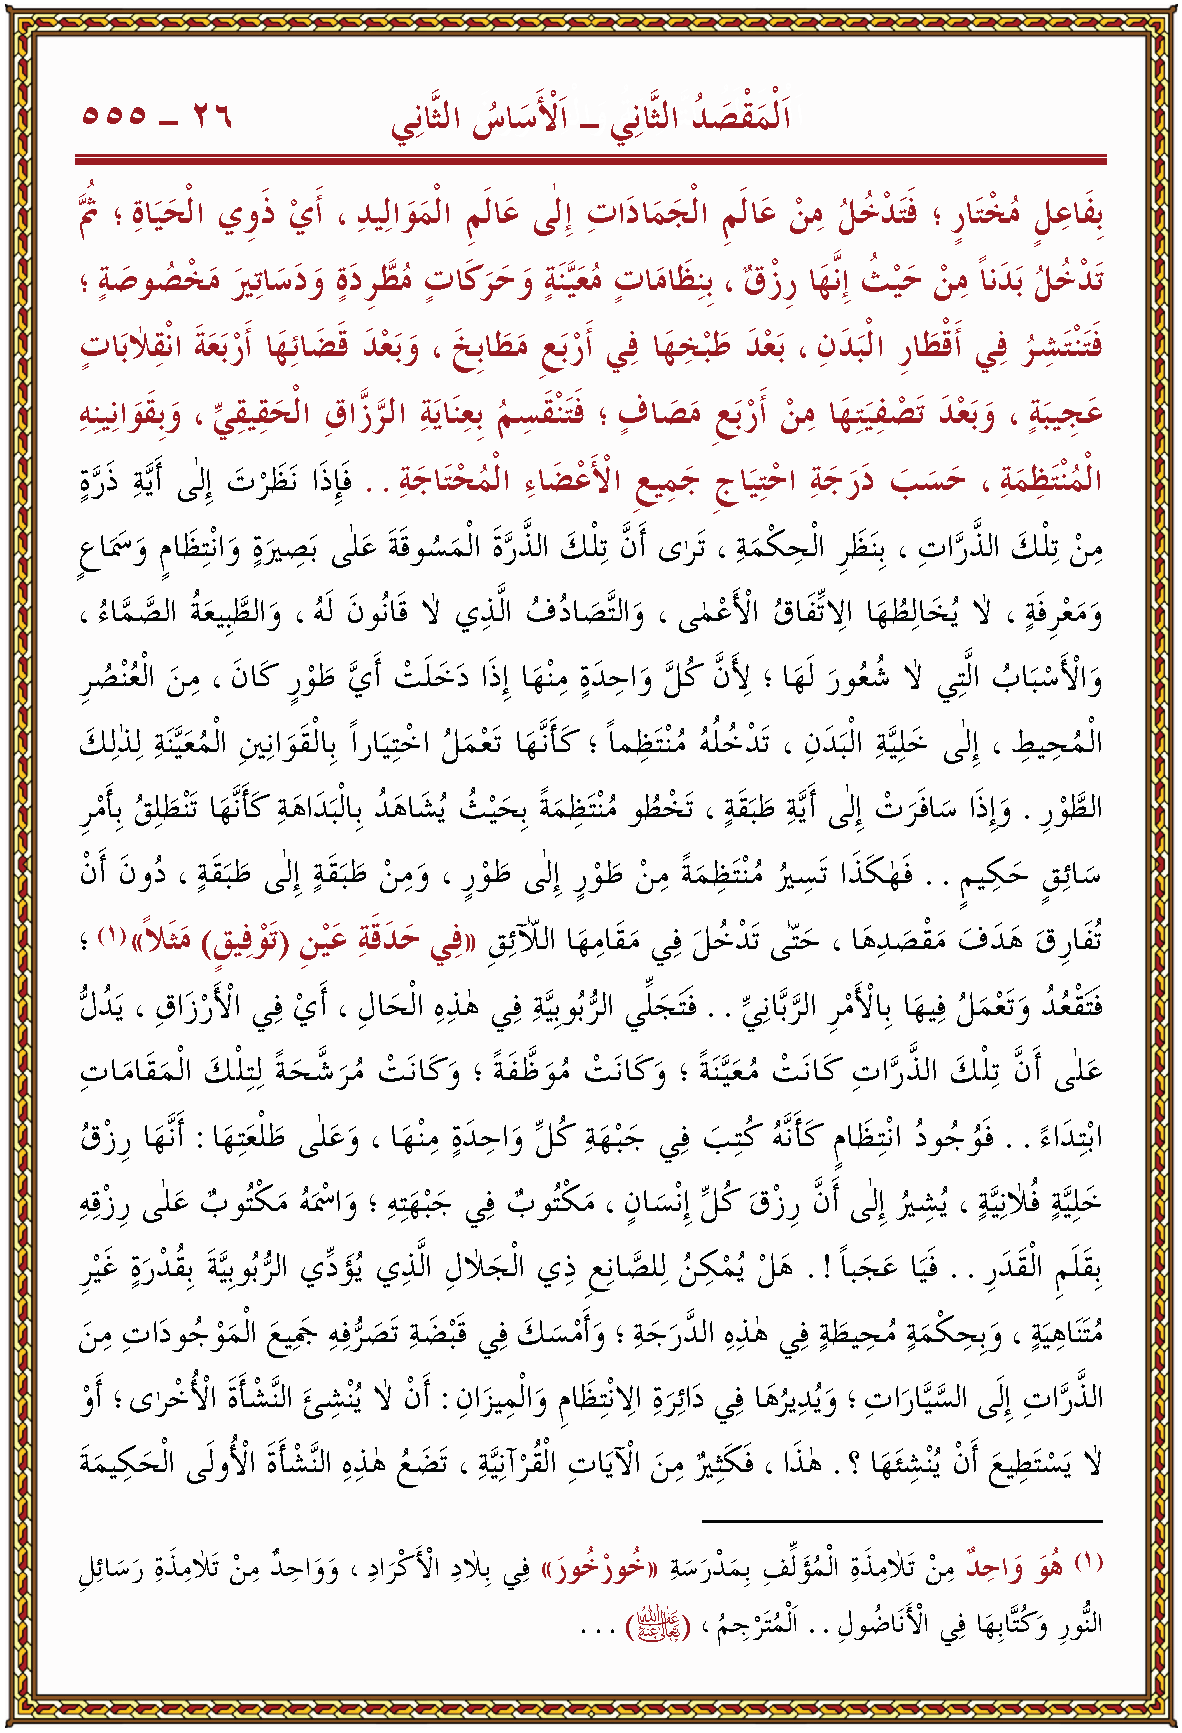 اَلْمَقْصَدُ الثَّانِي ــ اَلْأَسَاسُ الثَّانِي ٢٦ ــ ٥٥٥
بِفَاعِلٍ مُخْتَارٍ ؛ فَتَدْخُلُ مِنْ عَالَمِ الْجَمَادَاتِ إِلٰى عَالَمِ الْمَوَالِيدِ ، أَيْ ذَوِي الْحَيَاةِ ؛ ثُمَّ
تَدْخُلُ بَدَناً مِنْ حَيْثُ إِنَّهَا رِزْقٌ ، بِنِظَامَاتٍ مُعَيَّنَةٍ وَحَرَكَاتٍ مُطَّرِدَةٍ وَدَسَاتِيرَ مَخْصُوصَةٍ ؛
فَتَنْتَشِرُ فِي أَقْطَارِ الْبَدَنِ ، بَعْدَ طَبْخِهَا فِي أَرْبَعِ مَطَابِخَ ، وَبَعْدَ قَضَائِهَا أَرْبَعَةَ انْقِلَابَاتٍ
عَجِيبَةٍ ، وَبَعْدَ تَصْفِيَتِهَا مِنْ أَرْبَعِ مَصَافٍ ؛ فَتَنْقَسِمُ بِعِنَايَةِ الرَّزَّاقِ الْحَقِيقِيِّ ، وَبِقَوَانِينِهِ
الْمُنْتَظِمَةِ ، حَسَبَ دَرَجَةِ احْتِيَاجِ جَمِيعِ الْأَعْضَاءِ الْمُحْتَاجَةِ . . فَإِذَا نَظَرْتَ إِلٰى أَيَّةِ ذَرَّةٍ
مِنْ تِلْكَ الذَّرَّاتِ ، بِنَظَرِ الْحِكْمَةِ ، تَرٰى أَنَّ تِلْكَ الذَّرَّةَ الْمَسُوقَةَ عَلٰى بَصِيرَةٍ وَانْتِظَامٍ وَسَمَاعٍ
وَمَعْرِفَةٍ ، لَا يُخَالِطُهَا الِاتِّفَاقُ الْأَعْمٰى ، وَالتَّصَادُفُ الَّذِي لَا قَانُونَ لَهُ ، وَالطَّبِيعَةُ الصَّمَّاءُ ،
وَالْأَسْبَابُ الَّتِي لَا شُعُورَ لَهَا ؛ لِأَنَّ كُلَّ وَاحِدَةٍ مِنْهَا إِذَا دَخَلَتْ أَيَّ طَوْرٍ كَانَ ، مِنَ الْعُنْصُرِ
الْمُحِيطِ ، إِلٰى خَلِيَّةِ الْبَدَنِ ، تَدْخُلُهُ مُنْتَظِماً ؛ كَأَنَّهَا تَعْمَلُ اخْتِيَاراً بِالْقَوَانِينِ الْمُعَيَّنَةِ لِذٰلِكَ
الطَّوْرِ . وَإِذَا سَافَرَتْ إِلٰى أَيَّةِ طَبَقَةٍ ، تَخْطُو مُنْتَظِمَةً بِحَيْثُ يُشَاهَدُ بِالْبَدَاهَةِ كَأَنَّهَا تَنْطَلِقُ بِأَمْرِ
سَائِقٍ حَكِيمٍ . . فَهٰكَذَا تَسِيرُ مُنْتَظِمَةً مِنْ طَوْرٍ إِلٰى طَوْرٍ ، وَمِنْ طَبَقَةٍ إِلٰى طَبَقَةٍ ، دُونَ أَنْ
تُفَارِقَ هَدَفَ مَقْصِدِهَا ، حَتّٰى تَدْخُلَ فِي مَقَامِهَا اللَّآئِقِ «فِي حَدَقَةِ عَيْنِ (تَوْفِيقٍ) مَثَلاً»(١) ؛
فَتَقْعُدُ وَتَعْمَلُ فِيهَا بِالْأَمْرِ الرَّبَّانِيِّ . . فَتَجَلِّي الرُّبُوبِيَّةِ فِي هٰذِهِ الْحَالِ ، أَيْ فِي الْأَرْزَاقِ ، يَدُلُّ
عَلٰى أَنَّ تِلْكَ الذَّرَّاتِ كَانَتْ مُعَيَّنَةً ؛ وَكَانَتْ مُوَظَّفَةً ؛ وَكَانَتْ مُرَشَّحَةً لِتِلْكَ الْمَقَامَاتِ
ابْتِدَاءً . . فَوُجُودُ انْتِظَامٍ كَأَنَّهُ كُتِبَ فِي جَبْهَةِ كُلِّ وَاحِدَةٍ مِنْهَا ، وَعَلٰى طَلْعَتِهَا : أَنَّهَا رِزْقُ
خَلِيَّةٍ فُلَانِيَّةٍ ، يُشِيرُ إِلٰى أَنَّ رِزْقَ كُلِّ إِنْسَانٍ ، مَكْتُوبٌ فِي جَبْهَتِهِ ؛ وَاسْمُهُ مَكْتُوبٌ عَلٰى رِزْقِهِ
بِقَلَمِ الْقَدَرِ . . فَيَا عَجَباً ! . هَلْ يُمْكِنُ لِلصَّانِعِ ذِي الْجَلَالِ الَّذِي يُؤَدِّي الرُّبُوبِيَّةَ بِقُدْرَةٍ غَيْرِ
مُتَنَاهِيَةٍ ، وَبِحِكْمَةٍ مُحِيطَةٍ فِي هٰذِهِ الدَّرَجَةِ ؛ وَأَمْسَكَ فِي قَبْضَةِ تَصَرُّفِهِ جَمِيعَ الْمَوْجُودَاتِ مِنَ
الذَّرَّاتِ إِلَى السَّيَّارَاتِ ؛ وَيُدِيرُهَا فِي دَائِرَةِ الِانْتِظَامِ وَالْمِيزَانِ : أَنْ لَا يُنْشِئَ النَّشْأَةَ الْأُخْرٰى ؛ أَوْ
لَا يَسْتَطِيعَ أَنْ يُنْشِئَهَا ؟ . هٰذَا ، فَكَثِيرٌ مِنَ الْآيَاتِ الْقُرْآنِيَّةِ ، تَضَعُ هٰذِهِ النَّشْأَةَ الْأُولَى الْحَكِيمَةَ
(١) هُوَ وَاحِدٌ مِنْ تَلَامِذَةِ الْمُؤَلِّفِ بِمَدْرَسَةِ «خُورْخُورَ» فِي بِلَادِ الْأَكْرَادِ ، وَوَاحِدٌ مِنْ تَلَامِذَةِ رَسَائِلِ
النُّورِ وَكُتَّابِهَا فِي الْأَنَاضُولِ . . اَلْمُتَرْجِمُ ، (رَضِيَ اللهُ تَعَالٰى عَنْهُ) . . .